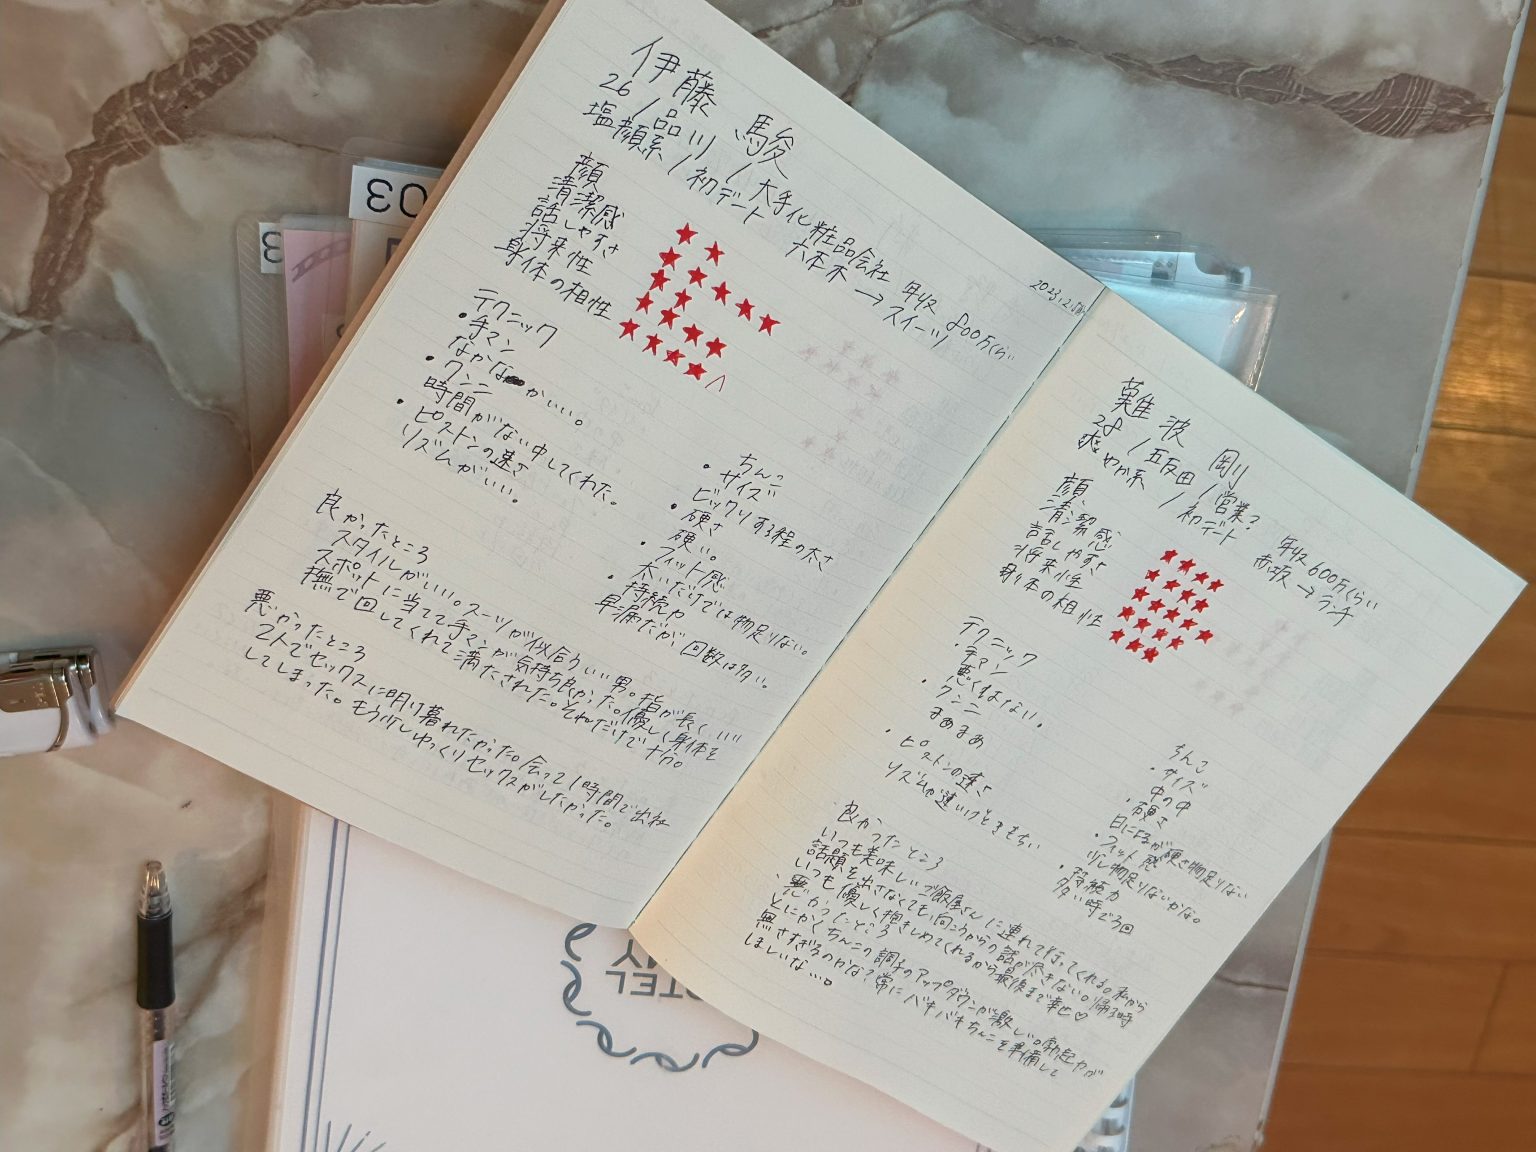 伊藤 駿
2023.2.
26 / 品川 / 大手化粧品会社 年収 800万くらい
塩顔系 / 初デート 六本木 → スイーツ
顔 ★★
清潔感 ★★★★★
話しやすさ ★★
将来性 ★★★★
身体の相性 ★★★★
テクニック
・手マン
なかなかいい。
・クンニ
時間がない中してくれた。
・ピストンの速さ
リズムがいい。
ちんこ
・サイズ
ビックリする程の太さ
・硬さ
硬い。
・フィット感
太いだけでは物足りない。
・持続力
早漏だが、回数は多い。
良かったところ
スタイルがいい。スーツが似合ういい男。指が長く、いい
スポットに当てて手マンが気持ち良かった。優しく身体を
撫で回してくれて満たされた。それだけで十分。
悪かったところ
2人でセックスに明け暮れたかった。会って1時間で出社
してしまった。もう少しゆっくりセックスがしたかった。
難波 剛
28 / 五反田 / 営業? 年収600万くらい
爽やか系 / 初デート 赤坂 → ランチ
顔 ★★★★
清潔感 ★★★★
話しやすさ ★★★★★
将来性 ★★★★
身体の相性 ★★★
テクニック
・手マン
悪くはない。
・クンニ
まあまあ
・ピストンの速さ
リズムが速いけどきもちい
ちんこ
・サイズ
中の中
・硬さ
日によるが硬さ物足りない
・フィット感
少し物足りないかな。
・持続力
多い時で3回
良かったところ
いつも美味しいご飯屋さんに連れて行ってくれる。私から
話題を出さなくても、向こうからの話が尽きない。帰る時
いつも優しく抱きしめてくれるから最後まで幸せ♡
悪かったところ
とにかくちんこの調子のアップダウンが激しい。勃起力が
無さすぎるのかな?常にバキバキちんこを準備して
ほしいな…。
03
3